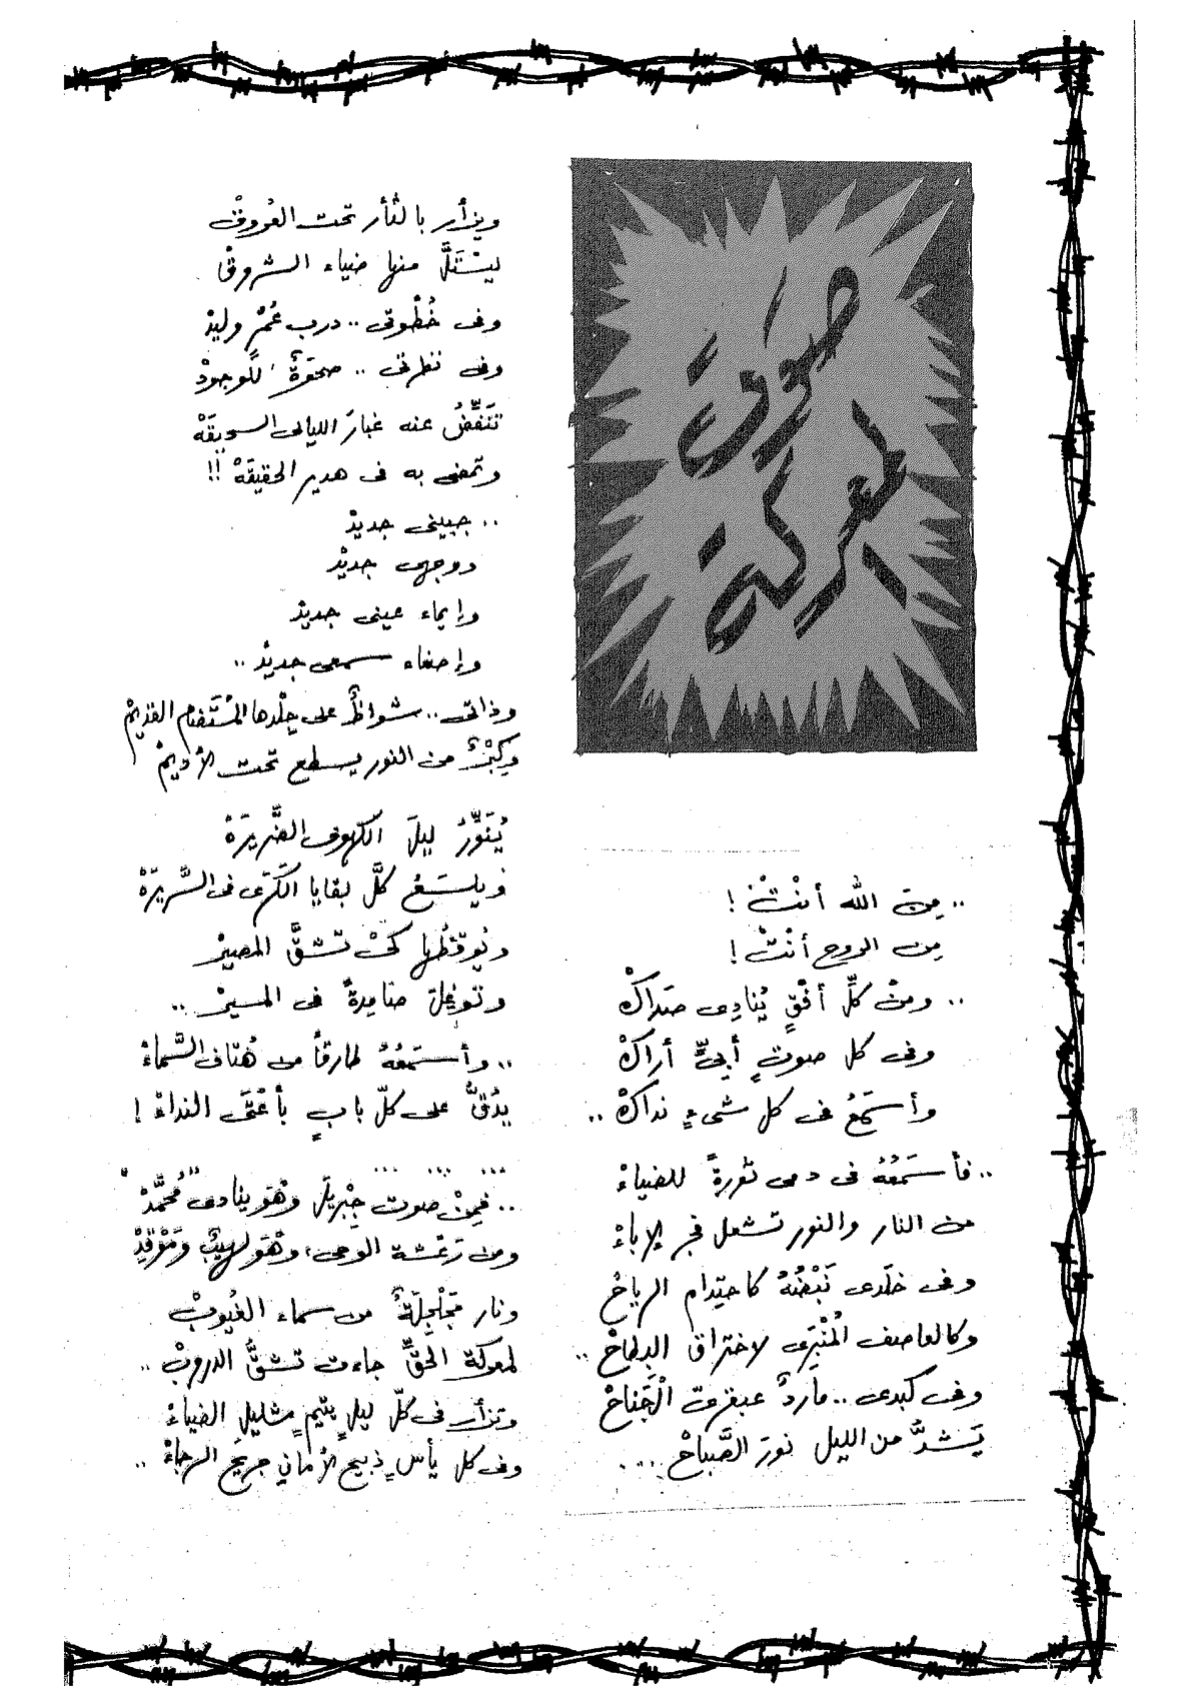 صوت
معركة
.. مِنَ الله أنْتْ !
مِن الروح أنْتْ !
.. ومنْ كلِّ أفْقٍ يُنادِى صَدَاكْ
وفى كل صوتٍ أبىٍّ أراكْ
وأسمَعُ فى كل شىءٍ نداكْ ..
.. فأسمَعُهُ فى دمى ثورةً للضياءْ
من النار والنور تشعل فجر الإباءْ
وفى خَلَدى نَبْضُهُ كاحتِدام الرياحْ
وكالعاصف المُنْبَرى لاختراق البِطاحْ ..
وفى كبدى .. ماردٌ عبقرىّ الْجَناحْ
يَشدُّ من الليل نورَ الصَّباحْ ....
ويزأر بالثأر تحت العُروقْ
ليسْتَلَّ منها ضياء الشروقْ
وفى خُطْوتى .. درب عُمْرٍ وليدْ
وفى نظرتى .. صحوَةٌ للوجودْ
تنَفِّضُ عنه غبارَ الليالى السحيقَهْ
وتمضى به فى هدير الحقيقَهْ !!
.. جبينى جديدْ
ووجهى جديدْ
وإيماء عينى جديدْ
وإصغاء سمعى جديدْ ..
وذاتى .. شواظٌ على جِلْدها المُسْتَضام القديمْ
وكِبْرٌ من النور يسطع تحت الأديمْ
يُنَوِّرُ ليلَ الكهوف الضَّريرَهْ
ويلسَعُ كلَّ بقايا الكَرَى فى السَّريرَهْ
ويُوقظُها كىْ تشقَّ المصيرْ
وتوغِلَ صامدةً فى المسيرْ ..
.. وأسمَعُهُ طارقاً من هُتاف السَّماءْ
يدُقُّ على كلّ بابٍ بأعْتَى النداءْ !
... ... ...
.. فمِنْ صوت جِبْريلَ وهْوَ ينادى "مُحمَّدْ"
ومن رَعْشة الوحى، وهْوَ لهيبٌ ومَوْقِدْ
ونار مُجَلْجِلَةٌ من سماء الغُيوبْ
لمعركة الحقِّ جاءت تشقُّ الدروبْ ..
وتزأر فى كلّ ليلٍ يتيمٍ شليل الضياءْ
وفى كل يأسٍ ذبيحِ الأمانى جريحَ الرجاءْ ..